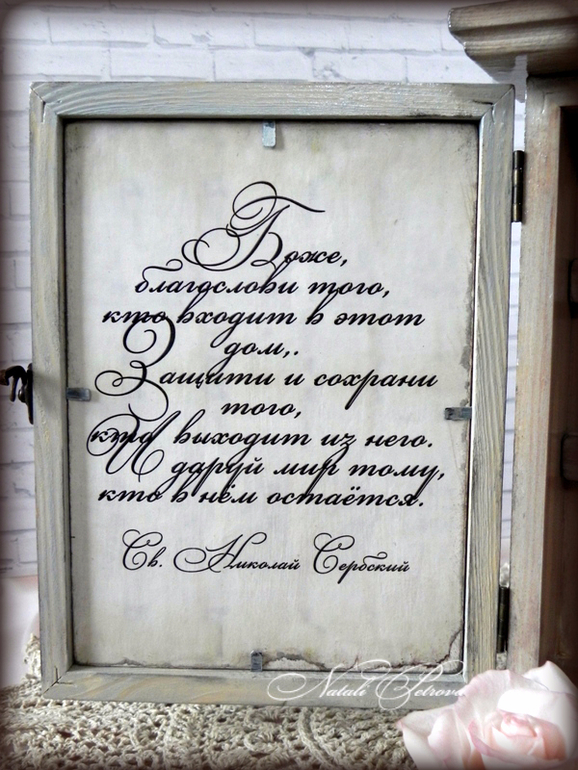 Боже,
благослови того,
кто входит в этот
дом,.
Защити и сохрани
того,
кто выходит из него.
И даруй мир тому,
кто в нём остаётся.
Св. Николай Сербский
Natali Petrova